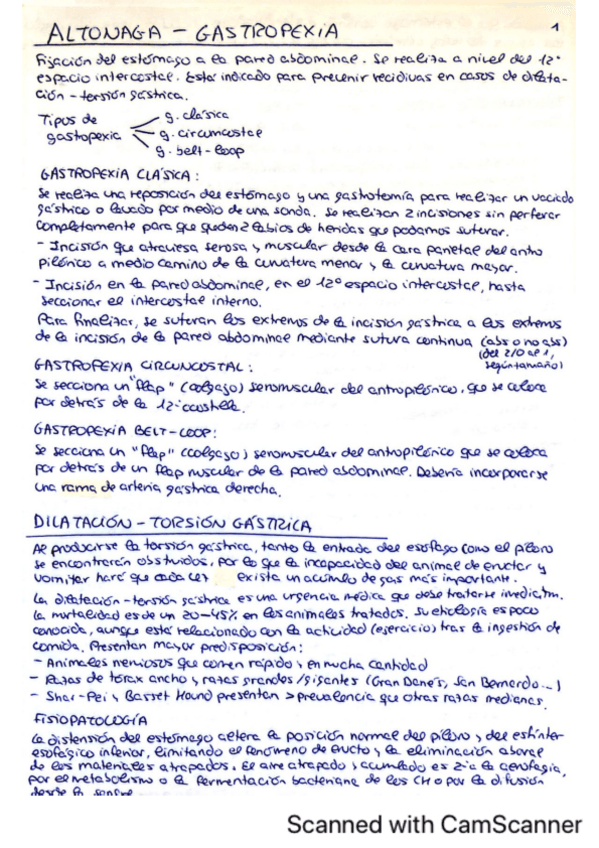 1
ALTONAGA - GASTROPEXIA
Fijación del estómago a la pared abdominal. Se realiza a nivel del 12º
espacio intercostal. Está indicado para prevenir recidivas en casos de dilata-
ción - torsión gástrica.
Tipos de gastropexia
g. clásica
g. circumcostal
g. belt-loop
GASTROPEXIA CLÁSICA:
Se realiza una reposición del estómago y una gastrotomía para realizar un vaciado
gástrico o lavado por medio de una sonda. Se realizan 2 incisiones sin perforar
completamente para que queden 2 labios de heridas que podamos suturar.
- Incisión que atraviesa serosa y muscular desde la cara parietal del antro
pilórico a medio camino de la curvatura menor y la curvatura mayor.
- Incisión en la pared abdominal, en el 12º espacio intercostal, hasta
seccionar el intercostal interno.
Para finalizar, se suturan los extremos de la incisión gástrica a los extremos
de la incisión de la pared abdominal mediante sutura continua (abs o no abs)
(del 2/0 al 1,
según tamaño)
GASTROPEXIA CIRCUNCOSTAL:
Se secciona un "flap" (colgajo) seromuscular del antropilórico, que se coloca
por detrás de la 12ª costilla.
GASTROPEXIA BELT-LOOP:
Se secciona un "flap" (colgajo) seromuscular del antropilórico que se coloca
por detrás de un flap muscular de la pared abdominal. Debería incorporarse
una rama de arteria gástrica derecha.
DILATACIÓN - TORSIÓN GÁSTRICA
Al producirse la torsión gástrica, tanto la entrada del esófago como el píloro
se encontrarán obstruidos. Por lo que la incapacidad del animal de eructar y
vomitar hará que cada vez exista un acúmulo de gas más importante.
La dilatación - torsión gástrica es una urgencia médica que debe tratarse inmediatm.
La mortalidad es de un 20-45% en los animales tratados. Su etiología es poco
conocida, aunque está relacionado con la actividad (ejercicio) tras la ingestión de
comida. Presentan mayor predisposición:
- Animales nerviosos que comen rápido y en mucha cantidad
- Razas de tórax ancho y razas grandes/gigantes (Gran Danés, San Bernardo...)
- Shar-Pei y Basset Hound presentan > prevalencia que otras razas medianas.
FISIOPATOLOGÍA
La distensión del estómago altera la posición normal del píloro y del esfínter
esofágico inferior, limitando el fenómeno de eructo y la eliminación aboral
de los materiales atrapados. El aire atrapado y acumulado es 2ia la aerofagia,
por el metabolismo o la fermentación bacteriana de los CH o por la difusión
desde la sangre
Scanned with CamScanner